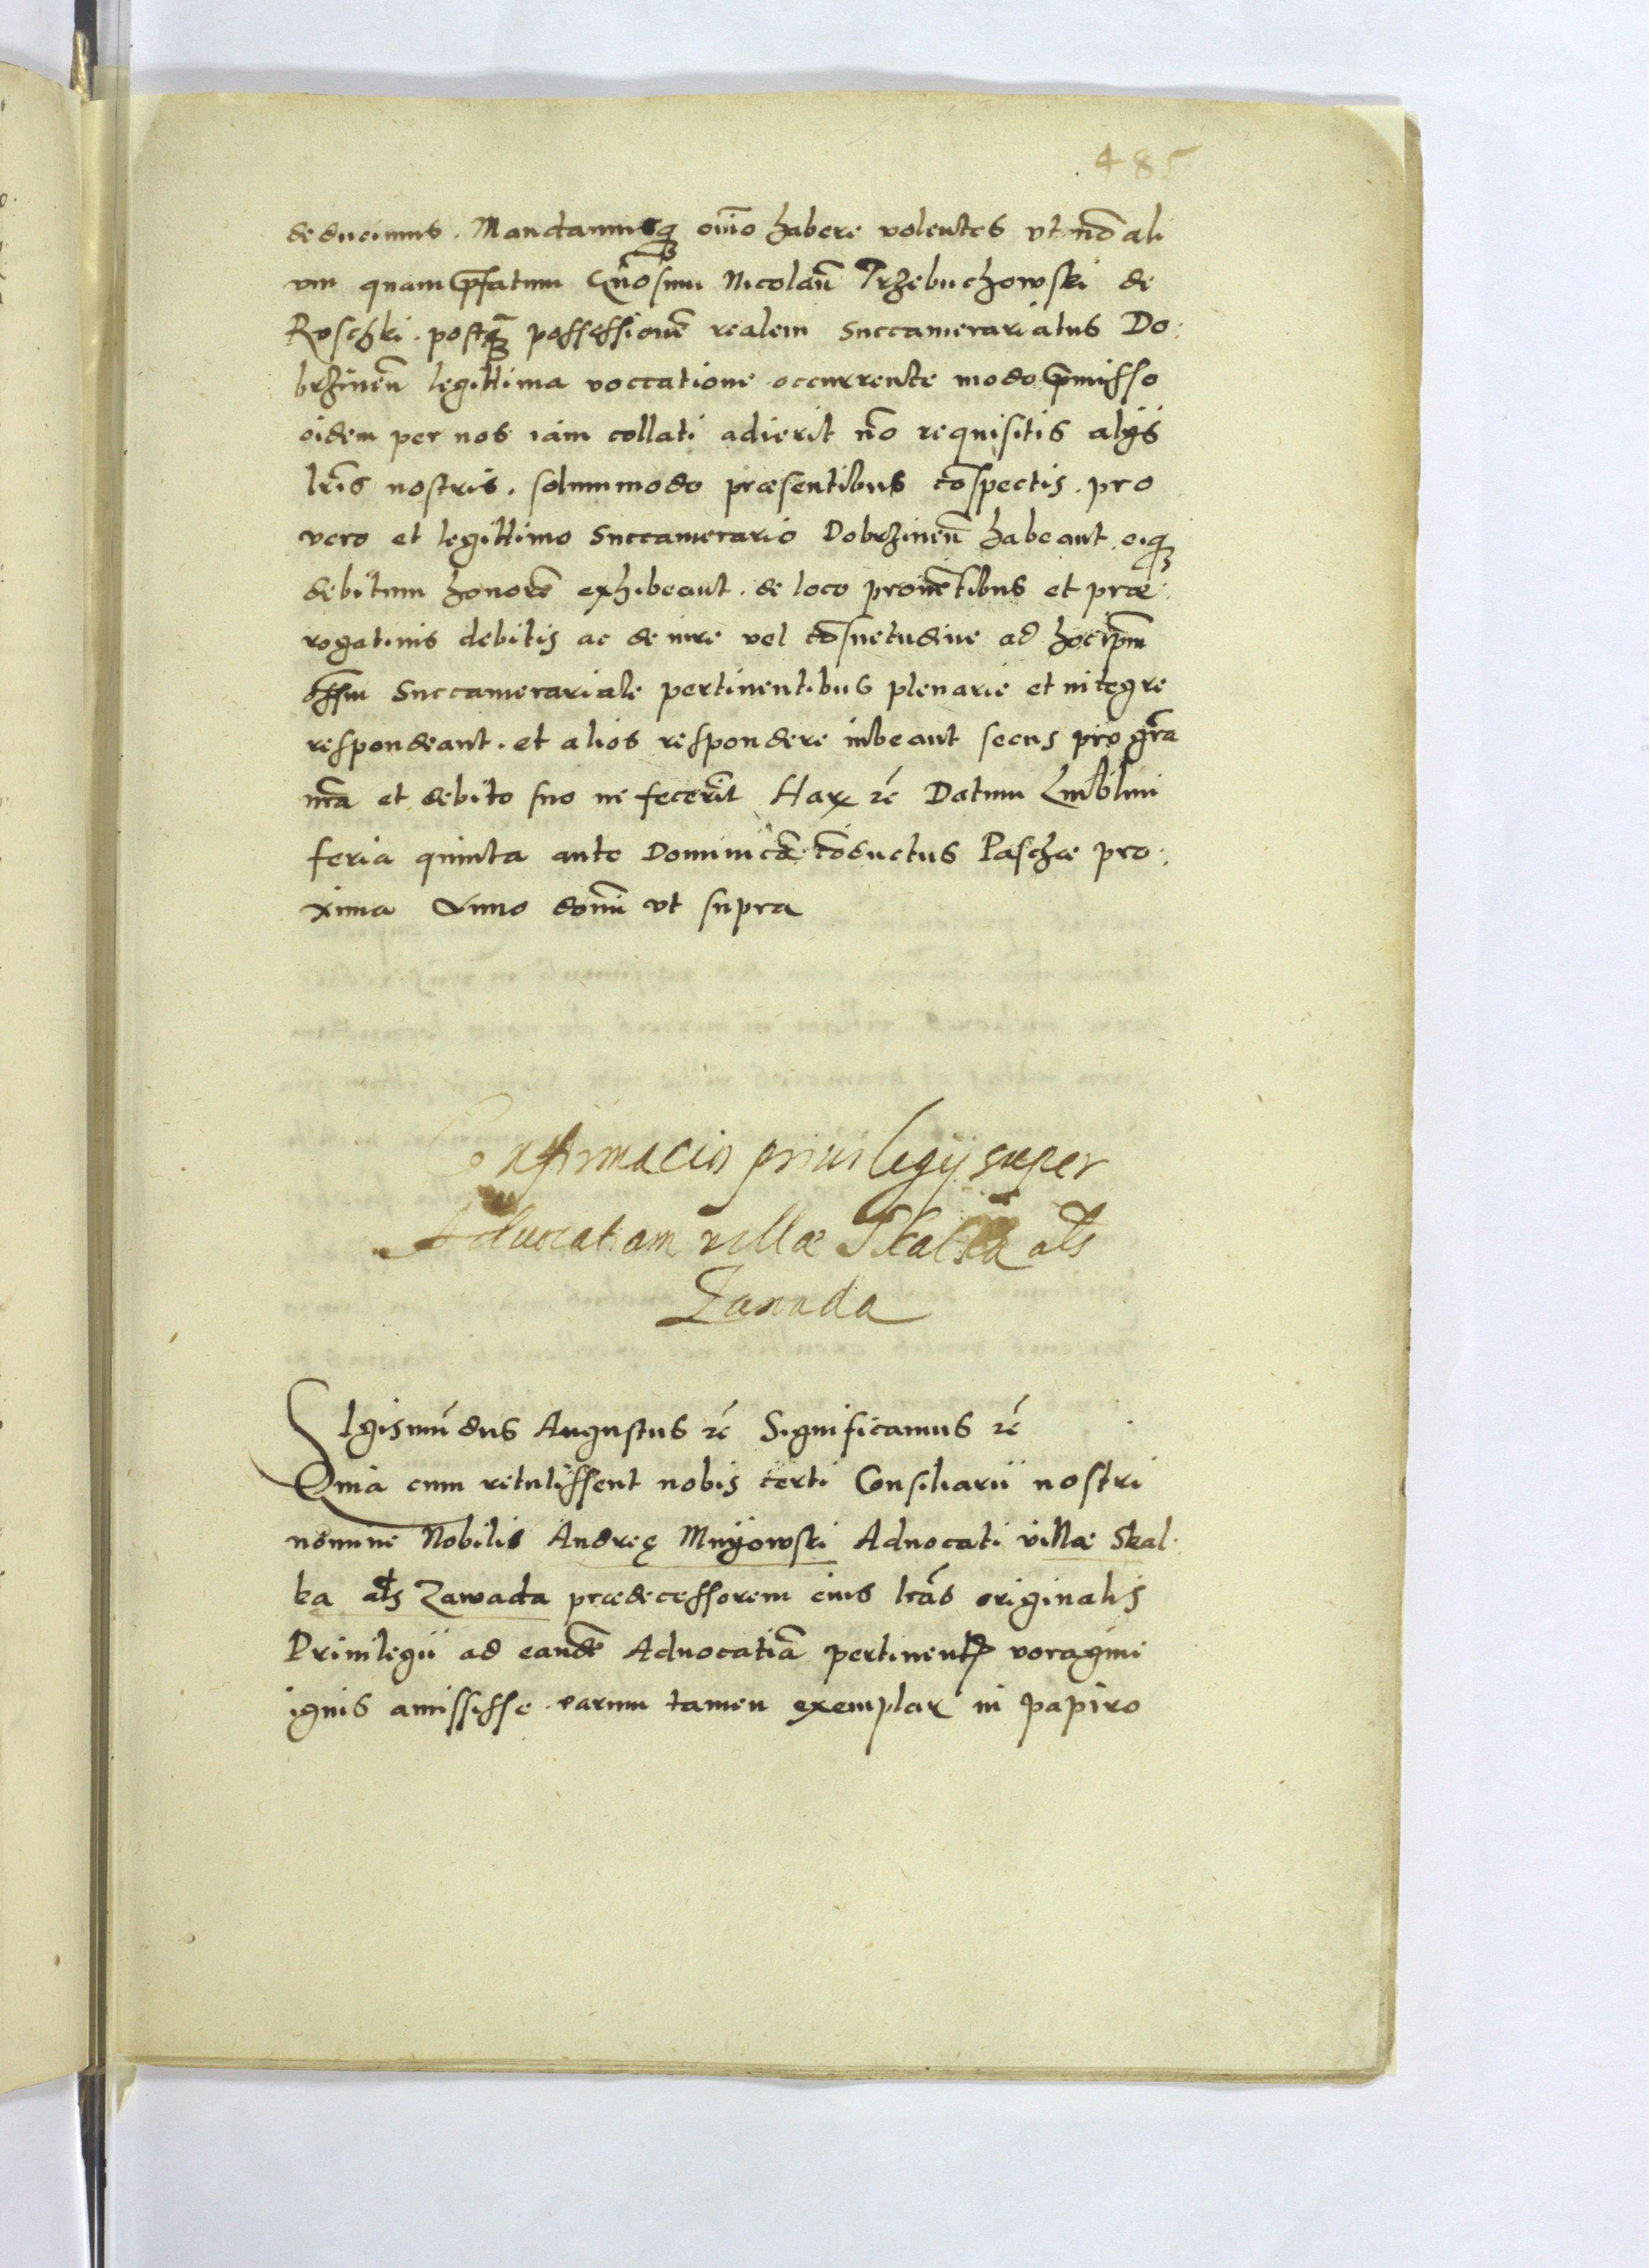 485
deducimus. Mandamusq₃ oīno habere volentes vt nō ali
um quam p̄fatum Gn̄osum Nicolaū Trzebuchowski de
Roschki. postq̄₃ possessionē realem Succamerariatus Do:
brzinen̄ legittima voccatione occurrente modo p̄misso
eidem per nos iam collati adierit nō requisitis alijs
lr̄is nostris. solummodo præsentibus cōspectis. pro
vero et legittimo Succamerario Dobrzinen̄ habeant. eiq₃
debitum honorē exhibeant. de loco prouētibus et præ:
rogatiuis debitis ac de iure vel cōsuetudine ad hoc ip̄m
offm̄ Succamerariale pertinentibus plenarie et integre
respondeant. et alios respondere iubeant secus pro gr̄a
nr̄a et debito suo ne fecerīt Harꝝ rē Datum Lublini
feria quinta ante Dominicā cōductus Paschæ pro:
xima Anno domī vt supra
Confirmacio priuilegij super
Aduocatiam villæ Skalka al̄s
Zawada
SIgismūdus Augustus rē Significamus rē
Quia cum retulissent nobis certi Consiliarii nostri
nomine Nobilis Andreę Mnyowski Aduocati villæ Skal:
ka al̄s Zawada prædecessorem eius lr̄as originalis
Priuilegii ad eandē Aduocatiā pertinentꝭ voragine
ignis amississe. earum tamen exemplar in papiro